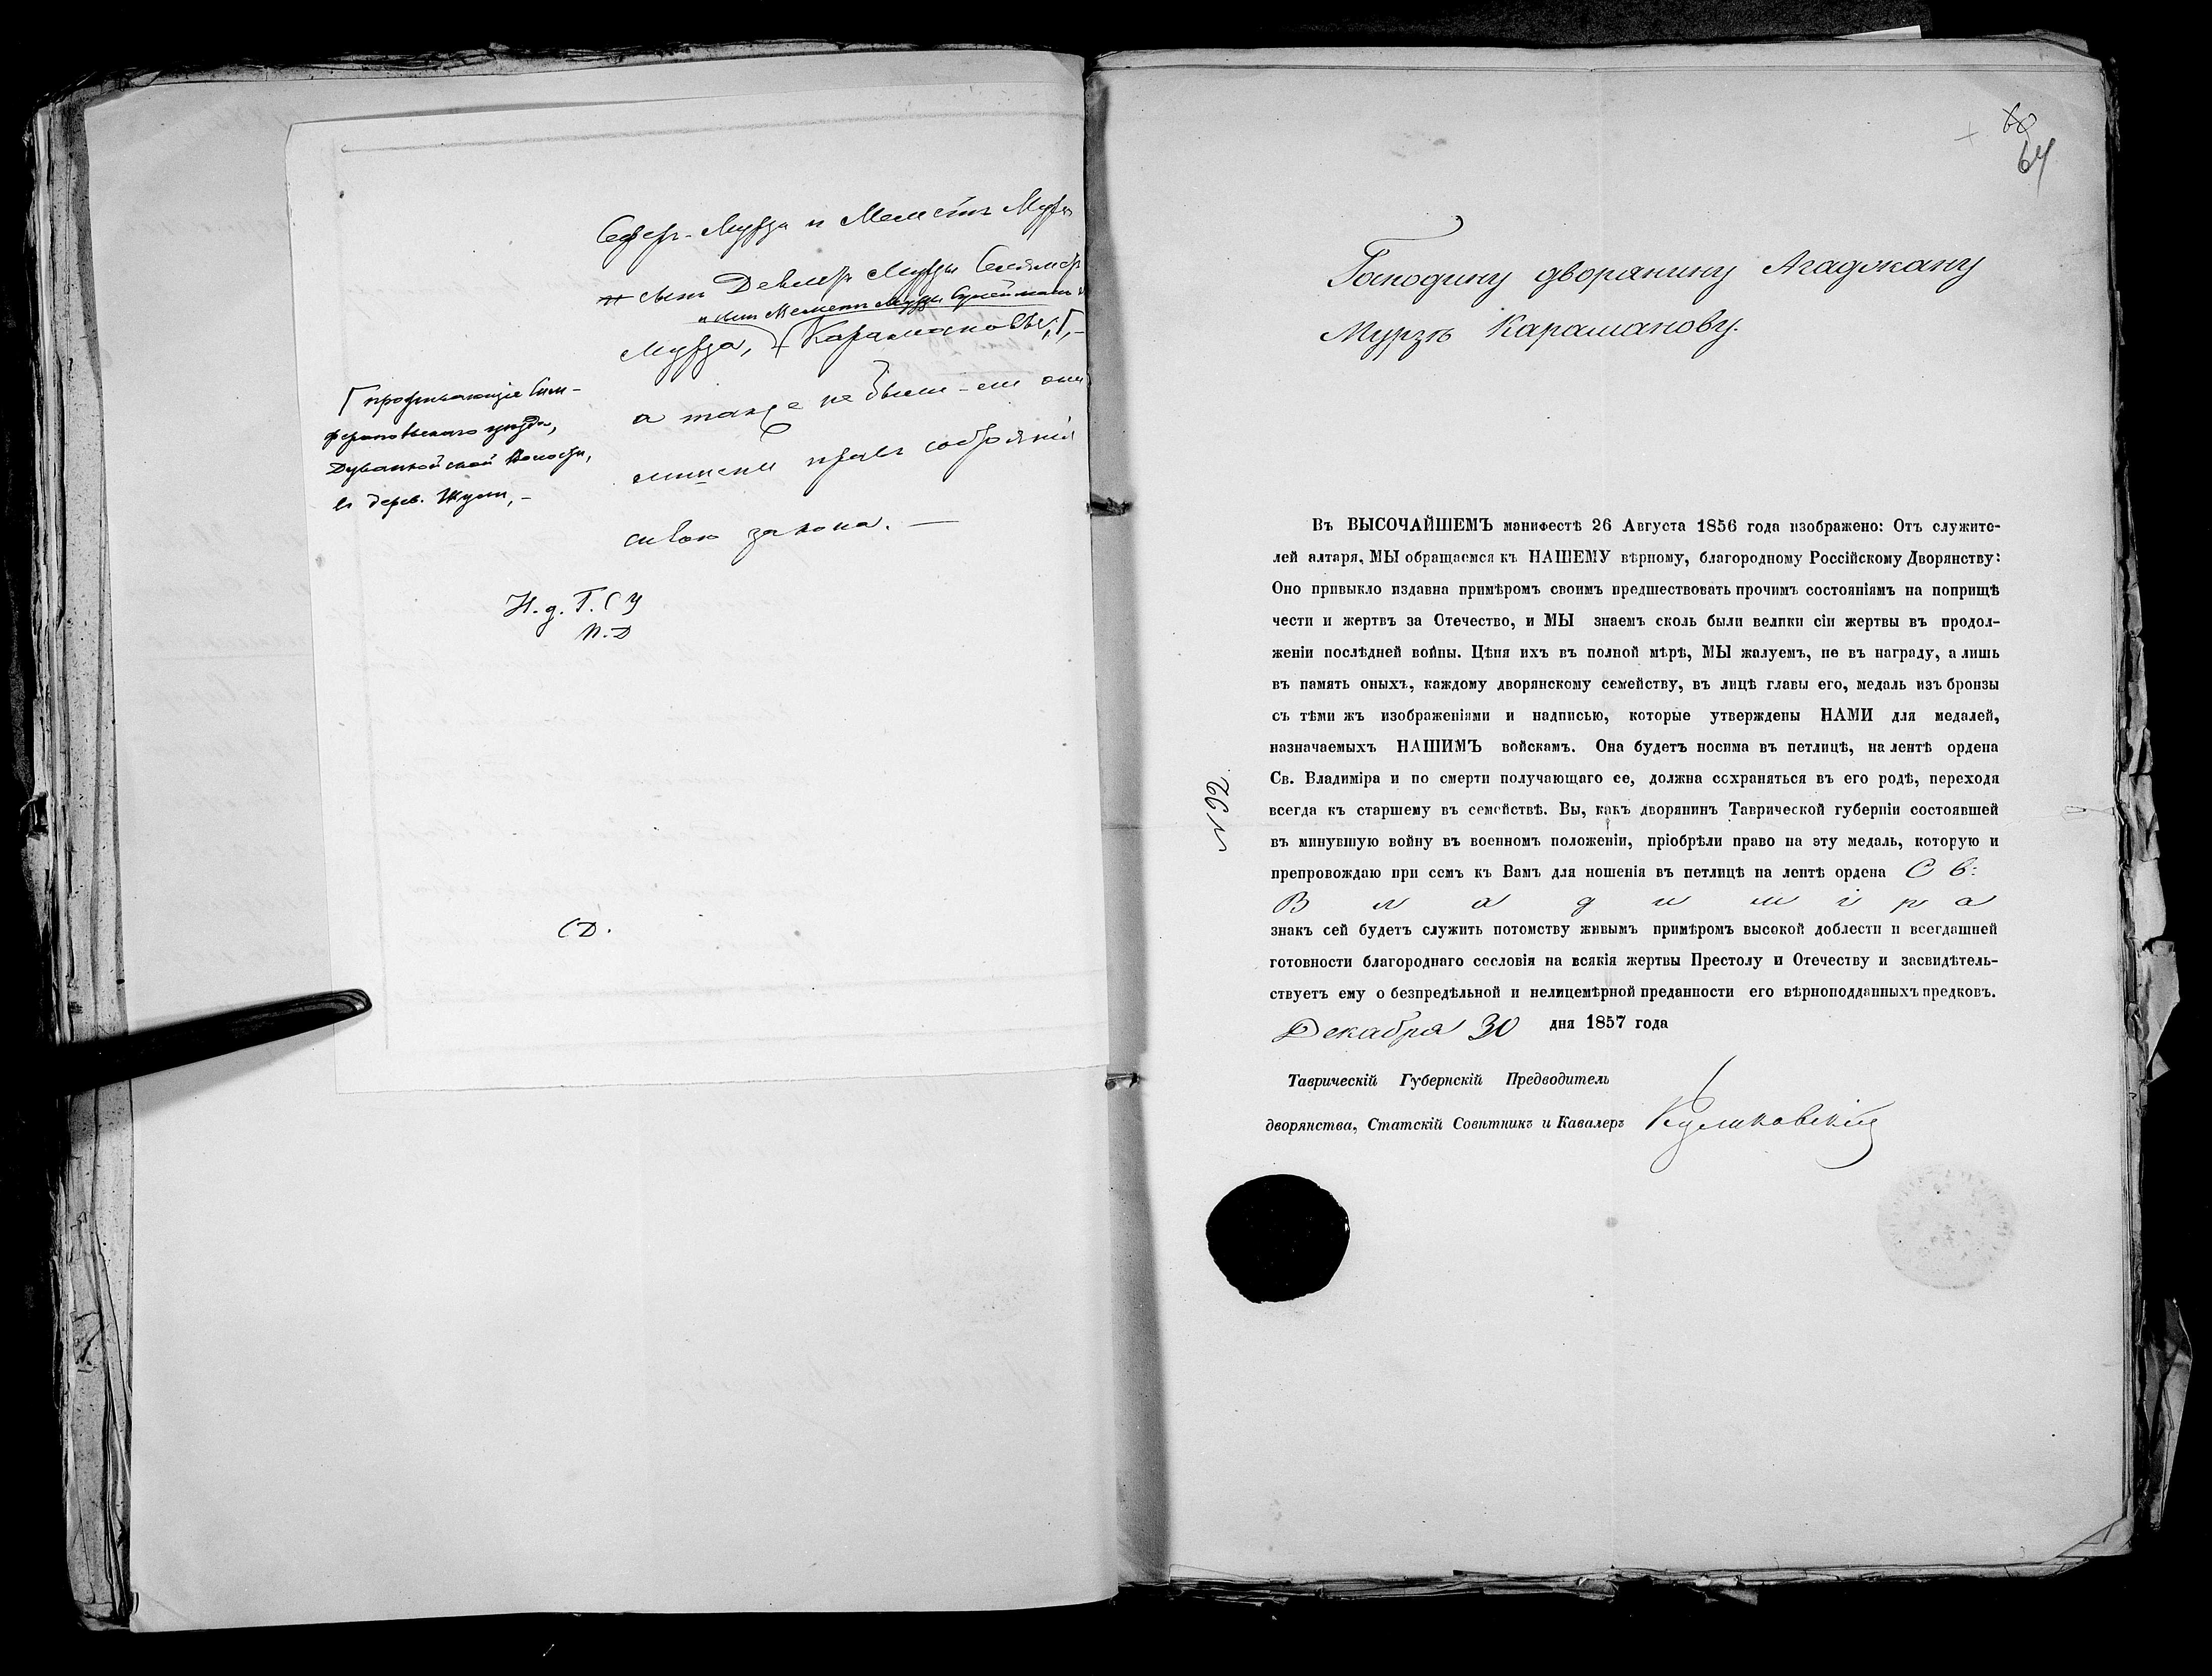 Сефер-Мурза и Мемет Мурза
сын Девлет Мурзы Селямет
и сын Мемет Мурзы Сулейман
Мурза, Карамановы,
а также не были-ли они
лишены прав состоянія
силою закона. —
проживающіе Сим-
феропольскаго уезда,
Дуванкойской Волости,
в дерев. –
И. д. Г. С У
П. Д
СД.
60
64
Господину дворянину Агаджану
Мурзѣ Караманову.
Въ ВЫСОЧАЙШЕМЪ манифестѣ 26 Августа 1856 года изображено: Отъ служите-
лей алтаря, МЫ обращаемся къ НАШЕМУ вѣрному, благородному Россійскому Дворянству:
Оно привыкло издавна примѣромъ своимъ предшествовать прочимъ состояніямъ на поприщѣ
чести и жертвъ за Отечество, и МЫ знаемъ сколь были велики сіи жертвы въ продол-
женіи послѣдней войны. Цѣня ихъ въ полной мѣрѣ, МЫ жалуемъ, не въ награду, а лишь
въ память оныхъ, каждому дворянскому семейству, въ лицѣ главы его, медаль изъ бронзы
съ тѣми жъ изображеніями и надписью, которые утверждены НАМИ для медалей,
назначаемыхъ НАШИМЪ войскамъ. Она будетъ носима въ петлицѣ, на лентѣ ордена
Св. Владиміра и по смерти получающаго ее, должна сохраняться въ его родѣ, переходя
всегда къ старшему въ семействѣ. Вы, какъ дворянинъ Таврической губерніи состоявшей
въ минувшую войну въ военномъ положеніи, пріобрѣли право на эту медаль, которую и
препровождаю при семъ къ Вамъ для ношенія въ петлицѣ на лентѣ ордена Св:
Владиміра
знакъ сей будетъ служить потомству живымъ примѣромъ высокой доблести и всегдашней
готовности благороднаго сословія на всякія жертвы Престолу и Отечеству и засвидѣтель-
ствуетъ ему о безпредѣльной и нелицемѣрной преданности его вѣрноподданныхъ предковъ.
Декабря 30 дня 1857 года
Таврическій Губернскій Предводитель
дворянства, Статскій Совѣтникъ и Кавалеръ Куликовскій